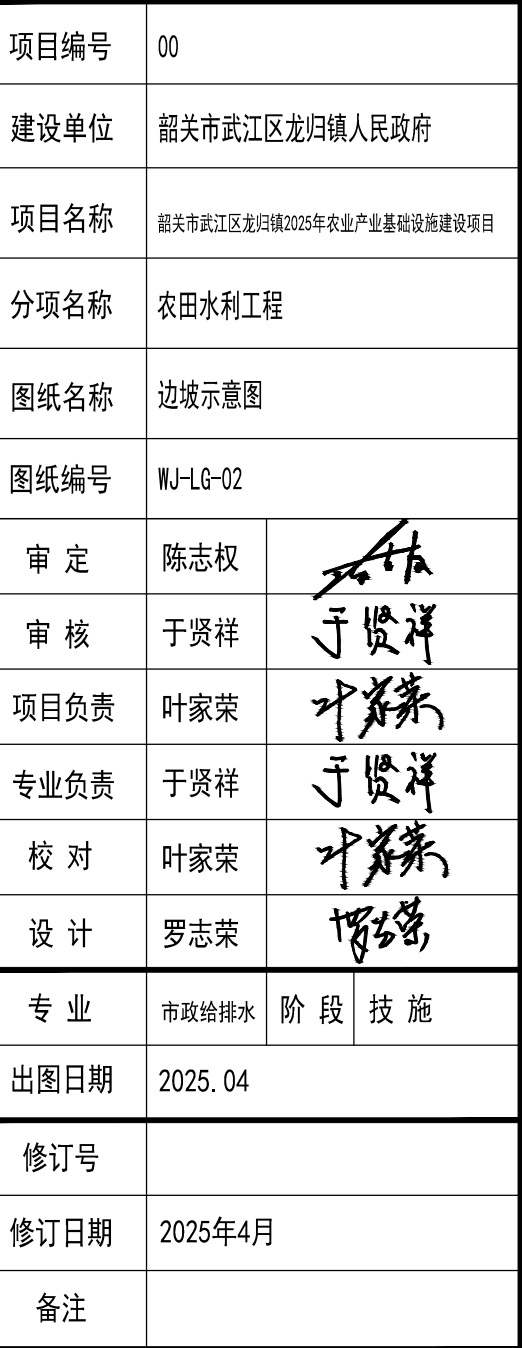 项目编号 00
建设单位 韶关市武江区龙归镇人民政府
项目名称 韶关市武江区龙归镇2025年农业产业基础设施建设项目
分项名称 农田水利工程
图纸名称 边坡示意图
图纸编号 WJ-LG-02
审 定 陈志权
审 核 于贤祥 于贤祥
项目负责 叶家荣 叶家荣
专业负责 于贤祥 于贤祥
校 对 叶家荣 叶家荣
设 计 罗志荣 罗志荣
专 业 市政给排水 阶 段 技 施
出图日期 2025.04
修订号
修订日期 2025年4月
备注